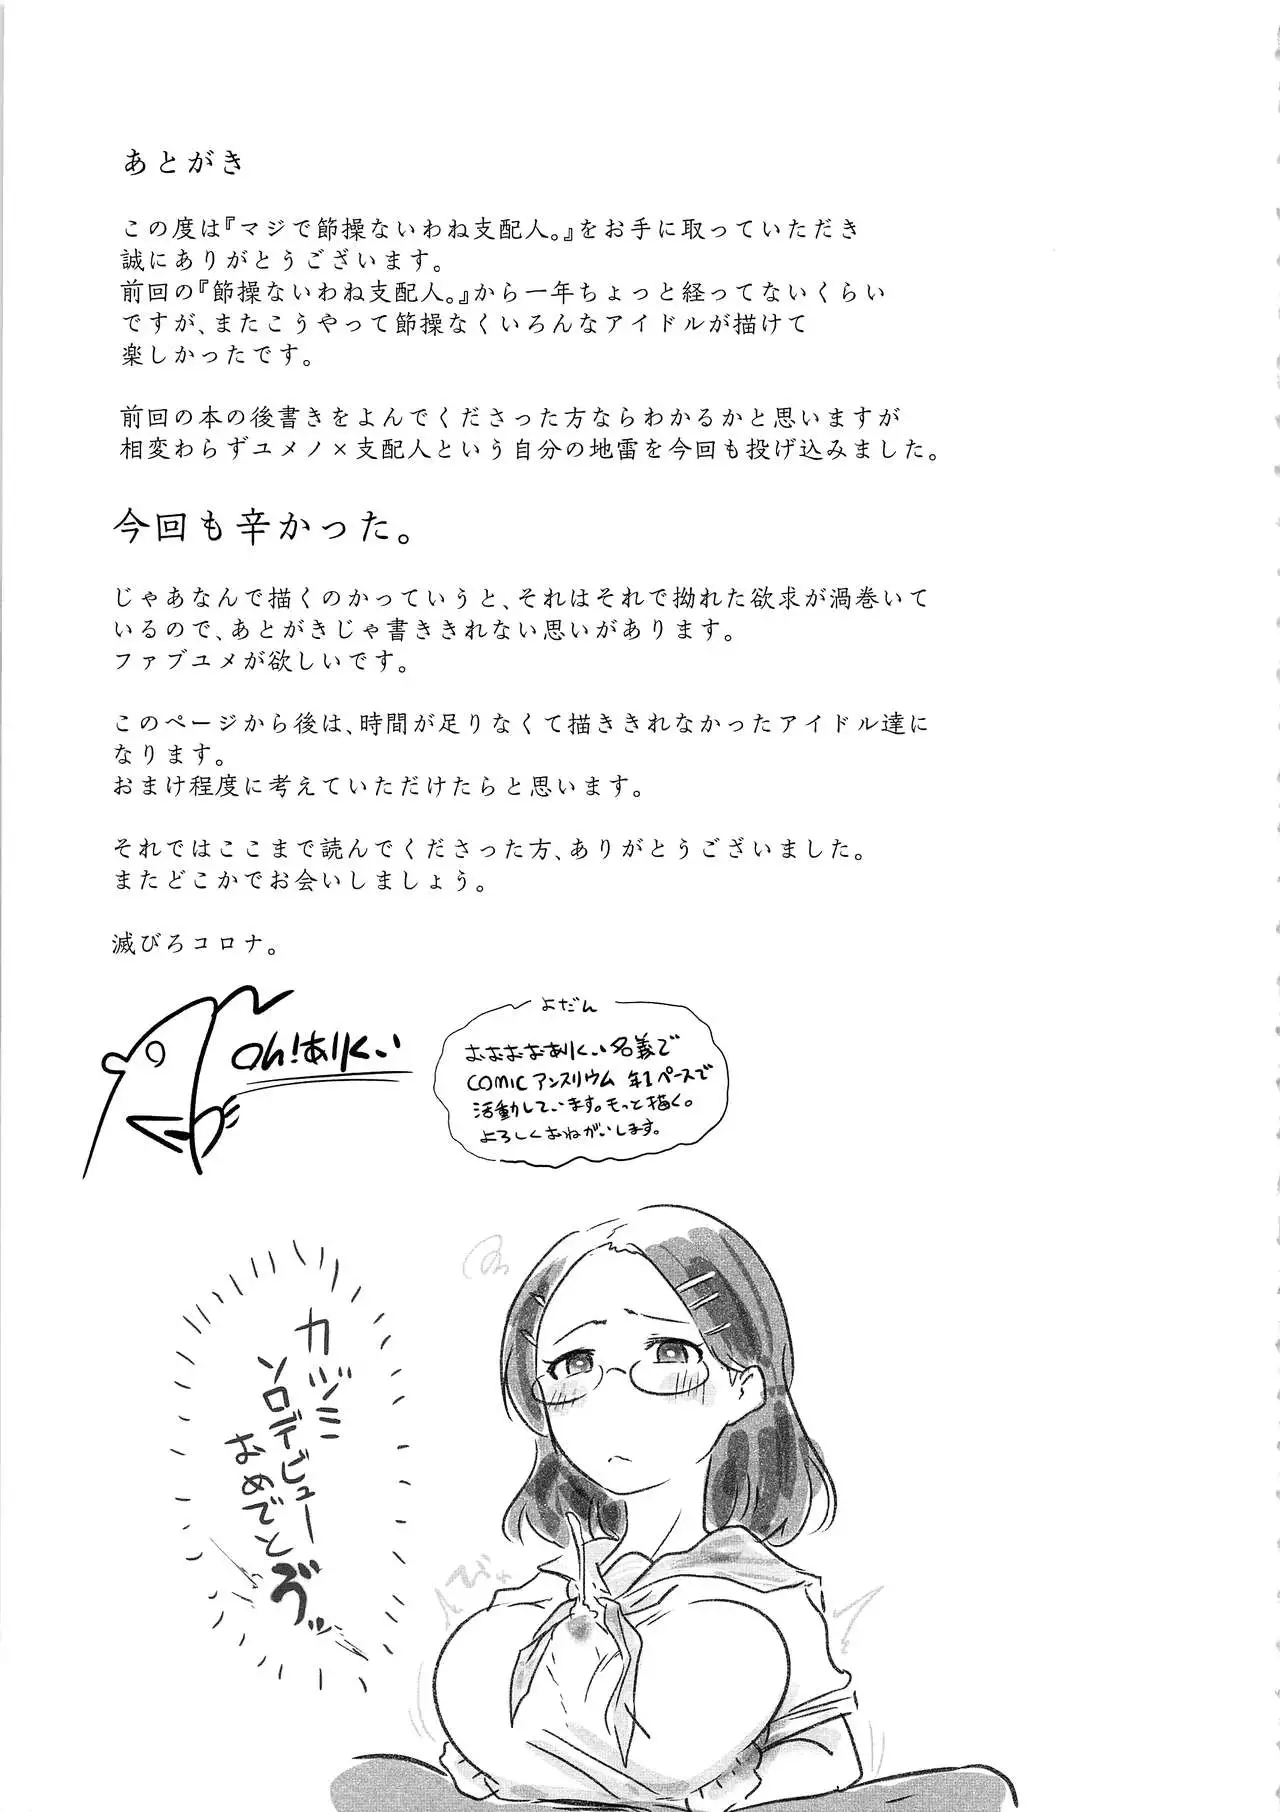 あとがき
この度は『マジで節操ないわね支配人。』をお手に取っていただき
誠にありがとうございます。
前回の『節操ないわね支配人。』から一年ちょっと経ってないくらい
ですが、またこうやって節操なくいろんなアイドルが描けて
楽しかったです。
前回の本の後書きをよんでくださった方ならわかるかと思いますが
相変わらずユメノ×支配人という自分の地雷を今回も投げ込みました。
今回も辛かった。
じゃあなんで描くのかっていうと、それはそれで拗れた欲求が渦巻いて
いるので、あとがきじゃ書ききれない思いがあります。
ファブユメが欲しいです。
このページから後は、時間が足りなくて描ききれなかったアイドル達に
なります。
おまけ程度に考えていただけたらと思います。
それではここまで読んでくださった方、ありがとうございました。
またどこかでお会いしましょう。
滅びろコロナ。
Oh!ありくい
よだん
おおおおありくい名義で
COMIC アンスリウム 年1ペースで
活動しています。もっと描く。
よろしくおねがいします。
カヅミ
ソロデビュー
おめでとゔッ
びゅ